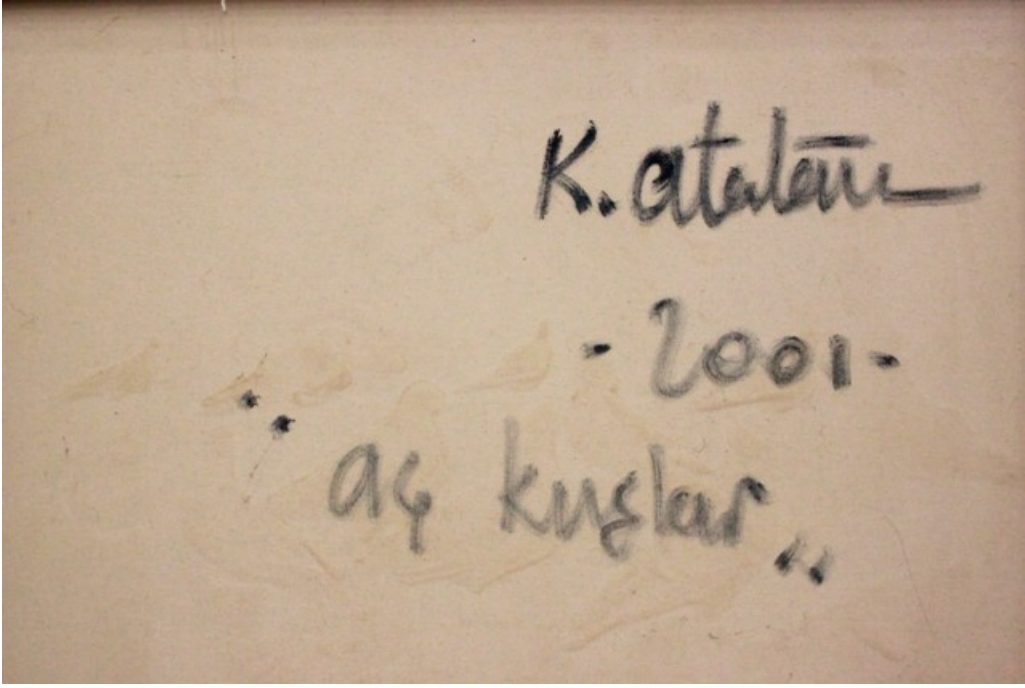 K. atalan
- 2001 -
" aç kuşlar "